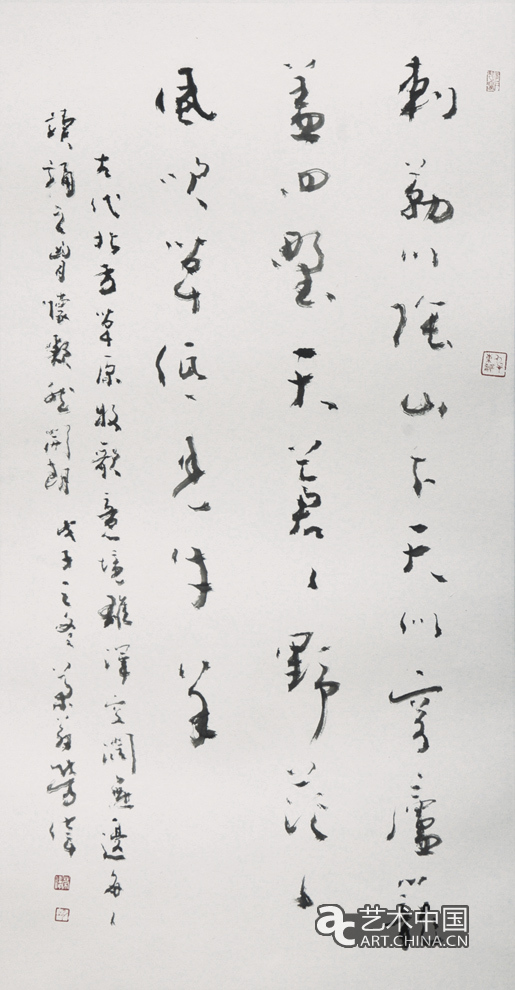 敕勒川陰山下天似穹廬籠
蓋四野天蒼々野茫々
風吹草低見牛羊
古代北方草原牧歌意境雄渾空闊無邊每々
讀誦之胸懷豁然開朗 戊子之冬
ac 艺术中国
ART.CHINA.CN